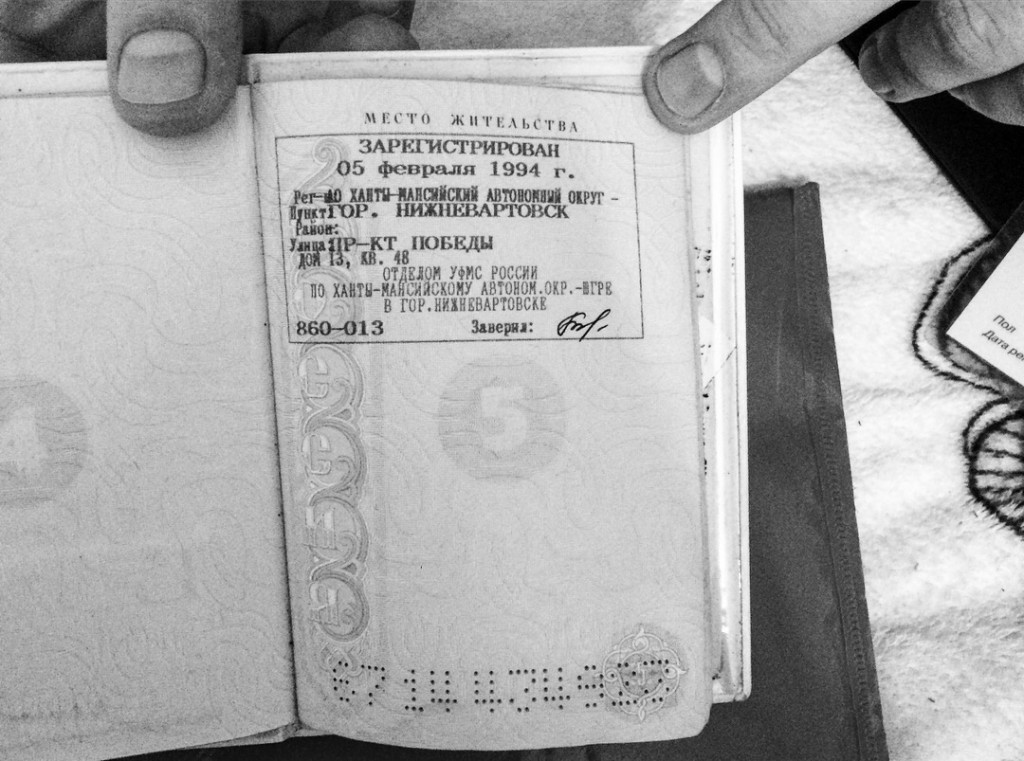 МЕСТО ЖИТЕЛЬСТВА
ЗАРЕГИСТРИРОВАН
05 февраля 1994 г.
Рег-н АО ХАНТЫ-МАНСИЙСКИЙ АВТОНОМНЫЙ ОКРУГ -
Пункт: ГОР. НИЖНЕВАРТОВСК
Район:
Улица: ПР-КТ ПОБЕДЫ
ДОМ 13, КВ. 48
ОТДЕЛОМ УФМС РОССИИ
ПО ХАНТЫ-МАНСИЙСКОМУ АВТОНОМ.ОКР.-ЮГРЕ
В ГОР.НИЖНЕВАРТОВСКЕ
860-013 Заверил:
4
5
Пол
Дата